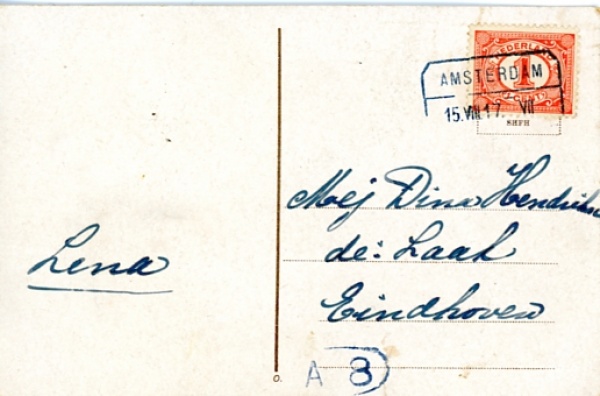 NEDERLAND
1
CENT
AMSTERDAM
15.VIII.17. VII
SHFH
Mej Dina Hendriks
de: Laak
Eindhoven
Lena
A 8
O.